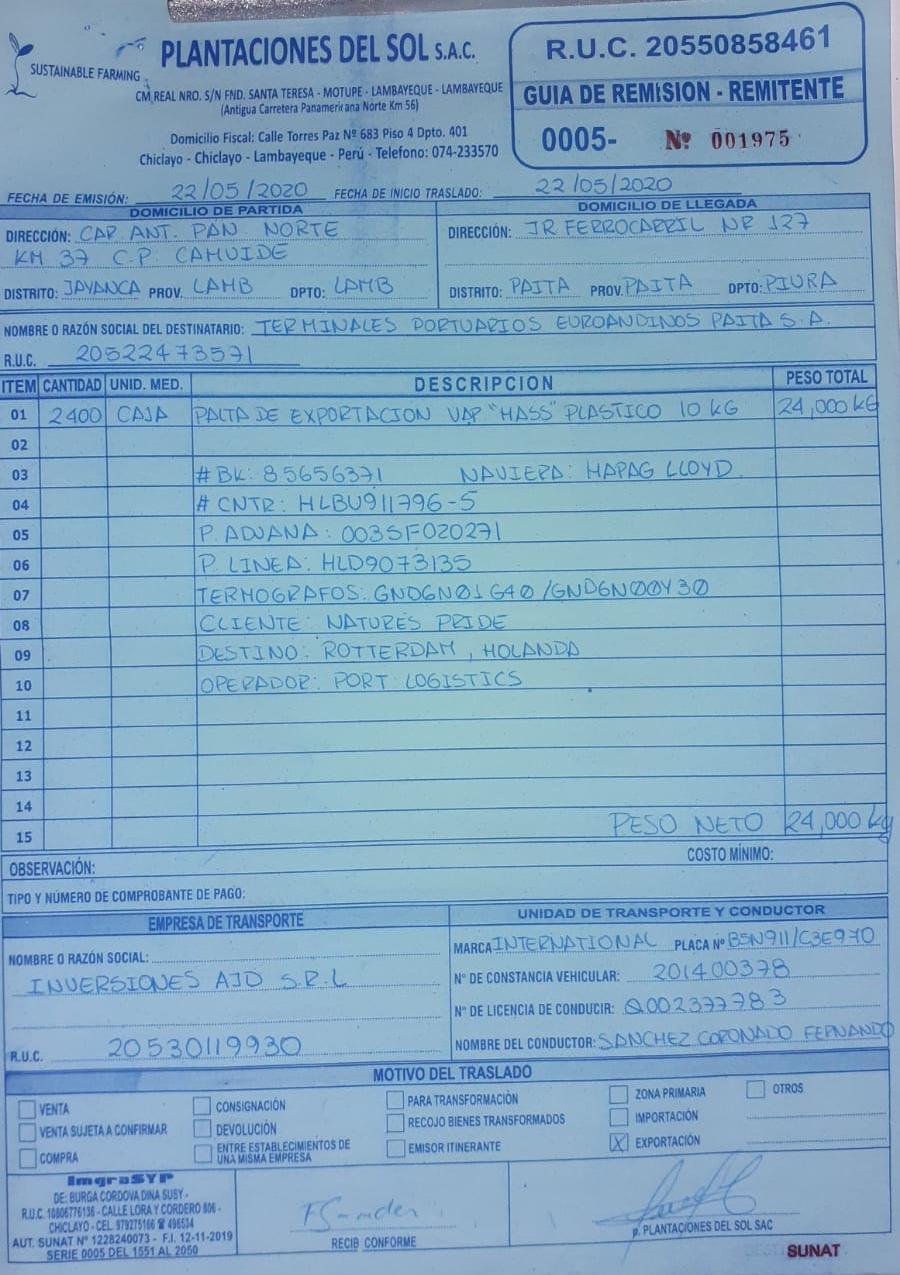 SUSTAINABLE FARMING
PLANTACIONES DEL SOL S.A.C.
CM REAL NRO. S/N FND. SANTA TERESA - MOTUPE - LAMBAYEQUE - LAMBAYEQUE
(Antigua Carretera Panamericana Norte Km 56)
Domicilio Fiscal: Calle Torres Paz Nº 683 Piso 4 Dpto. 401
Chiclayo - Chiclayo - Lambayeque - Perú - Telefono: 074-233570
R.U.C. 20550858461
GUIA DE REMISION - REMITENTE
0005- Nº 001975
FECHA DE EMISIÓN: 22/05/2020 FECHA DE INICIO TRASLADO: 22/05/2020
DOMICILIO DE PARTIDA
DIRECCIÓN: CAR. ANT. PAN. NORTE
KM 37 C.P. CAHUIDE
DISTRITO: JAYANCA PROV. LAMB DPTO: LAMB
DOMICILIO DE LLEGADA
DIRECCIÓN: JR FERROCARRIL NR 127
DISTRITO: PAITA PROV. PAITA DPTO: PIURA
NOMBRE O RAZÓN SOCIAL DEL DESTINATARIO: TERMINALES PORTUARIOS EUROANDINOS PAITA S.A.
R.U.C. 20522473571
ITEM CANTIDAD UNID. MED. DESCRIPCION PESO TOTAL
01 2400 CAJA PALTA DE EXPORTACION VAR "HASS" PLASTICO 10 KG 24,000 KG
02
03 # BK: 85656371 NAVIERA: HAPAG LLOYD
04 # CNTR: HLBU911796-5
05 P. ADUANA: 003SF020271
06 P. LINEA: HLD9073135
07 TERMOGRAFOS: GND6N01G40 /GND6N00Y30
08 CLIENTE: NATURES PRIDE
09 DESTINO: ROTTERDAM, HOLANDA
10 OPERADOR: PORT LOGISTICS
11
12
13
14
15 PESO NETO 24,000 kg
OBSERVACIÓN: COSTO MÍNIMO:
TIPO Y NÚMERO DE COMPROBANTE DE PAGO:
EMPRESA DE TRANSPORTE
NOMBRE O RAZÓN SOCIAL:
INVERSIONES AJD S.R.L
R.U.C. 20530119930
UNIDAD DE TRANSPORTE Y CONDUCTOR
MARCA INTERNATIONAL PLACA Nº B5N911/C3E970
N° DE CONSTANCIA VEHICULAR: 201400378
N° DE LICENCIA DE CONDUCIR: Q002377783
NOMBRE DEL CONDUCTOR: SANCHEZ CORONADO FERNANDO
MOTIVO DEL TRASLADO
VENTA CONSIGNACIÓN PARA TRANSFORMACIÓN ZONA PRIMARIA OTROS
VENTA SUJETA A CONFIRMAR DEVOLUCIÓN RECOJO BIENES TRANSFORMADOS IMPORTACIÓN
COMPRA ENTRE ESTABLECIMIENTOS DE UNA MISMA EMPRESA EMISOR ITINERANTE X EXPORTACIÓN
ImgraSYP
DE: BURGA CORDOVA DINA SUSY -
R.U.C. 10806776136 - CALLE LORA Y CORDERO 806 -
CHICLAYO - CEL. 979275166 ☎ 496534
AUT. SUNAT Nº 1228240073 - F.I. 12-11-2019
SERIE 0005 DEL 1551 AL 2050
RECIBI CONFORME
p. PLANTACIONES DEL SOL SAC
SUNAT